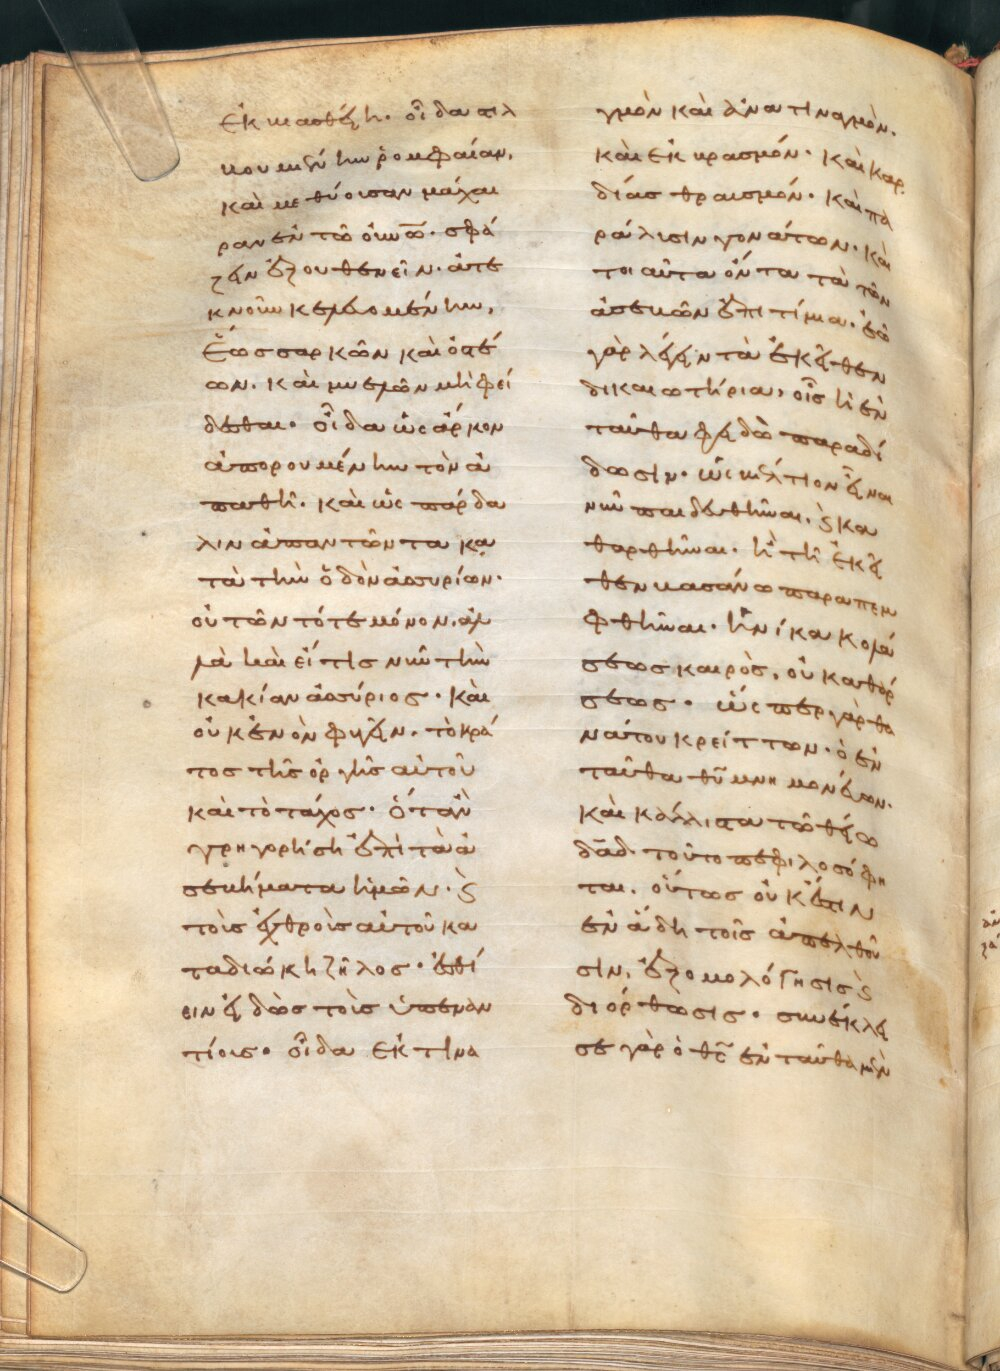 ἐκβιασθείη. οἶδα στιλ
βουμένην ῥομφαίαν,
καὶ μεθύουσαν μάχαι
ραν ἐν τῶ οὐνῶ. σφά
ζειν ἐξουθενεῖν. ἀτε
κνοῦν κελευομένην,
ἕως σαρκῶν καὶ ὀστέ
ων. καὶ μυελῶν μὴ φεί
δεσθαι. οἶδα ὡς ἄρκον
ἀπορουμένην τὸν ἀ
παθῆ. καὶ ὡς πάρδα
λιν ἀπαντῶντα κα
τὰ τὴν ὁδὸν ἀσυρίων.
οὐ τῶν τότε μόνον. ἀλ
λὰ καὶ εἴ τις νῦν τὴν
κακίαν ἀσύριος. καὶ
οὐκ ἐνὸν φυγεῖν. τὸ κρά
τος τῆς ὀργῆς αὐτοῦ
καὶ τὸ τάχος. ὅταν
γρηγορήση ἐπὶ τὰ ἀ
σεβήματα ἡμῶν. ϗ
τοὺς ἐχθροὺς αὐτοῦ κα
ταδιώκη ζῆλος. ἐσθί
ειν εἰδὼς τοὺς ὑπεναν
τίους. οἶδα ἐκτινα
γμὸν καὶ ἀνατιναγμὸν.
καὶ ἐκβρασμόν. καὶ καρ
δίας θραυσμόν. καὶ πα
ράλυσιν γονάτων. καὶ
τοιαῦτα ὄντα τὰ τῶν
ἀσεβῶν ἐπιτίμια. ἐῶ
γὰρ λέγειν τὰ ἐκεῖθεν
δικαιωτήρια, οἷς ἡ ἐν
ταῦθα φειδὼ παραδί
δωσιν. ὡς βέλτιον εἶναι
νῦν παιδευθῆναι, ϗ κα
θαρθῆναι. ἢ τῆ ἐκεῖ
θεν βασάνω παραπεμ
φθῆναι. ἡνίκα κολά
σεως καιρὸς, οὐ καθάρ
σεως. ὥσπερ γὰρ θα
νάτου κρείττων. ὁ ἐν
ταῦθα θῦ μνημονεύων.
καὶ κάλλιστα τῶ θείω
δᾱδ. τοῦτο πεφιλοσόφη
ται. οὕτως οὐκ ἔστιν
ἐν ἅδη τοῖς ἀπελθοῦ
σιν, ἐξομολόγησις ϗ
διόρθωσις. συνέκλει
σε γὰρ ὁ θς ἐνταῦθα μὲν